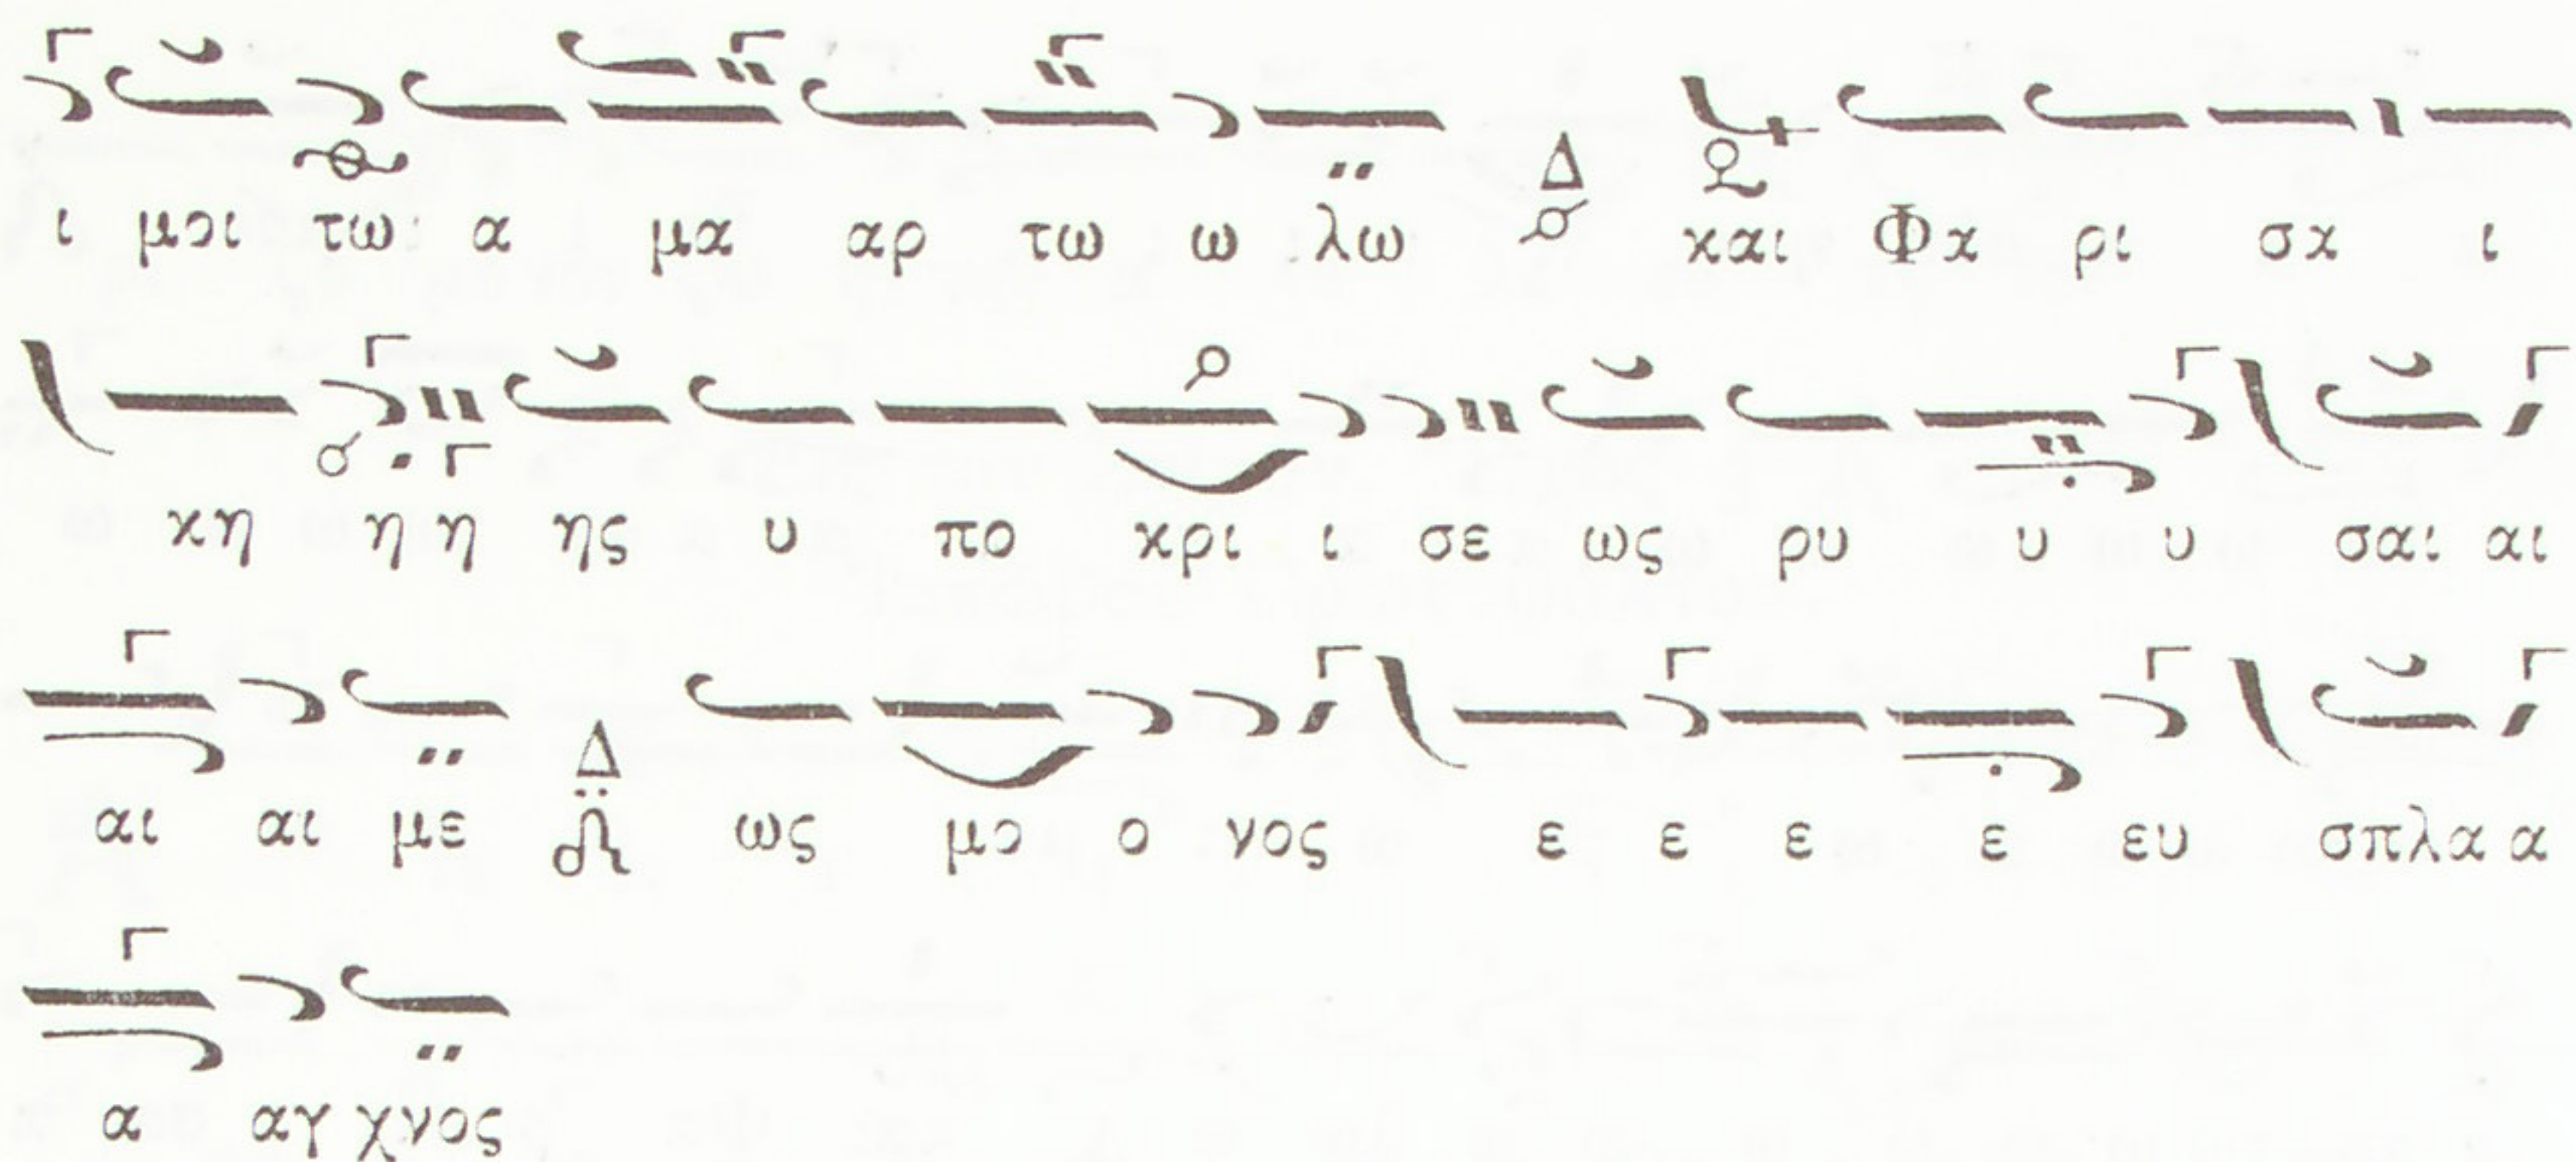 ι μοι τω α μα αρ τω ω λω Δ και Φα ρι σα ι
κη η η ης υ πο κρι ι σε ως ρυ υ υ σαι αι
αι αι με Δ ως μο ο νος ε ε ε ε ευ σπλα α
α αγ χνος